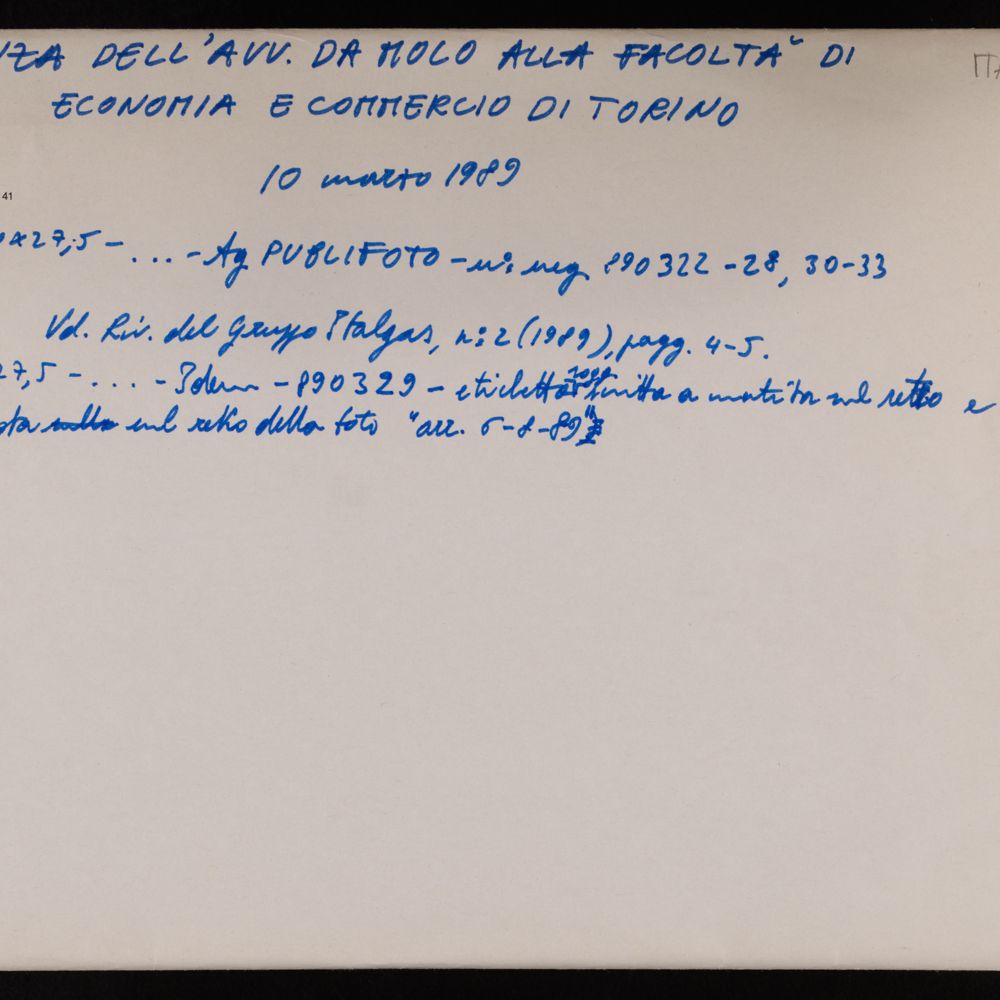 NZA DELL'AVV. DA MOLO ALLA FACOLTA' DI
ECONOMIA E COMMERCIO DI TORINO
10 marzo 1989
41
x27,5 - ... - Ag PUBLIFOTO - n: neg. 890322 - 28, 30-33
Vd. Riv. del Gruppo Italgas, n: 2 (1989), pagg. 4-5.
27,5 - .... - Idem - 890329 - etichetta scritta a matita sul retro e
sul retro della foto "arr. 6-8-89"